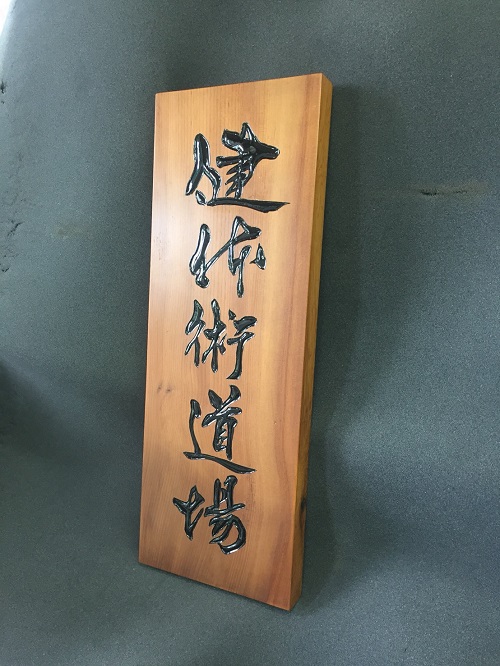 健体術道場